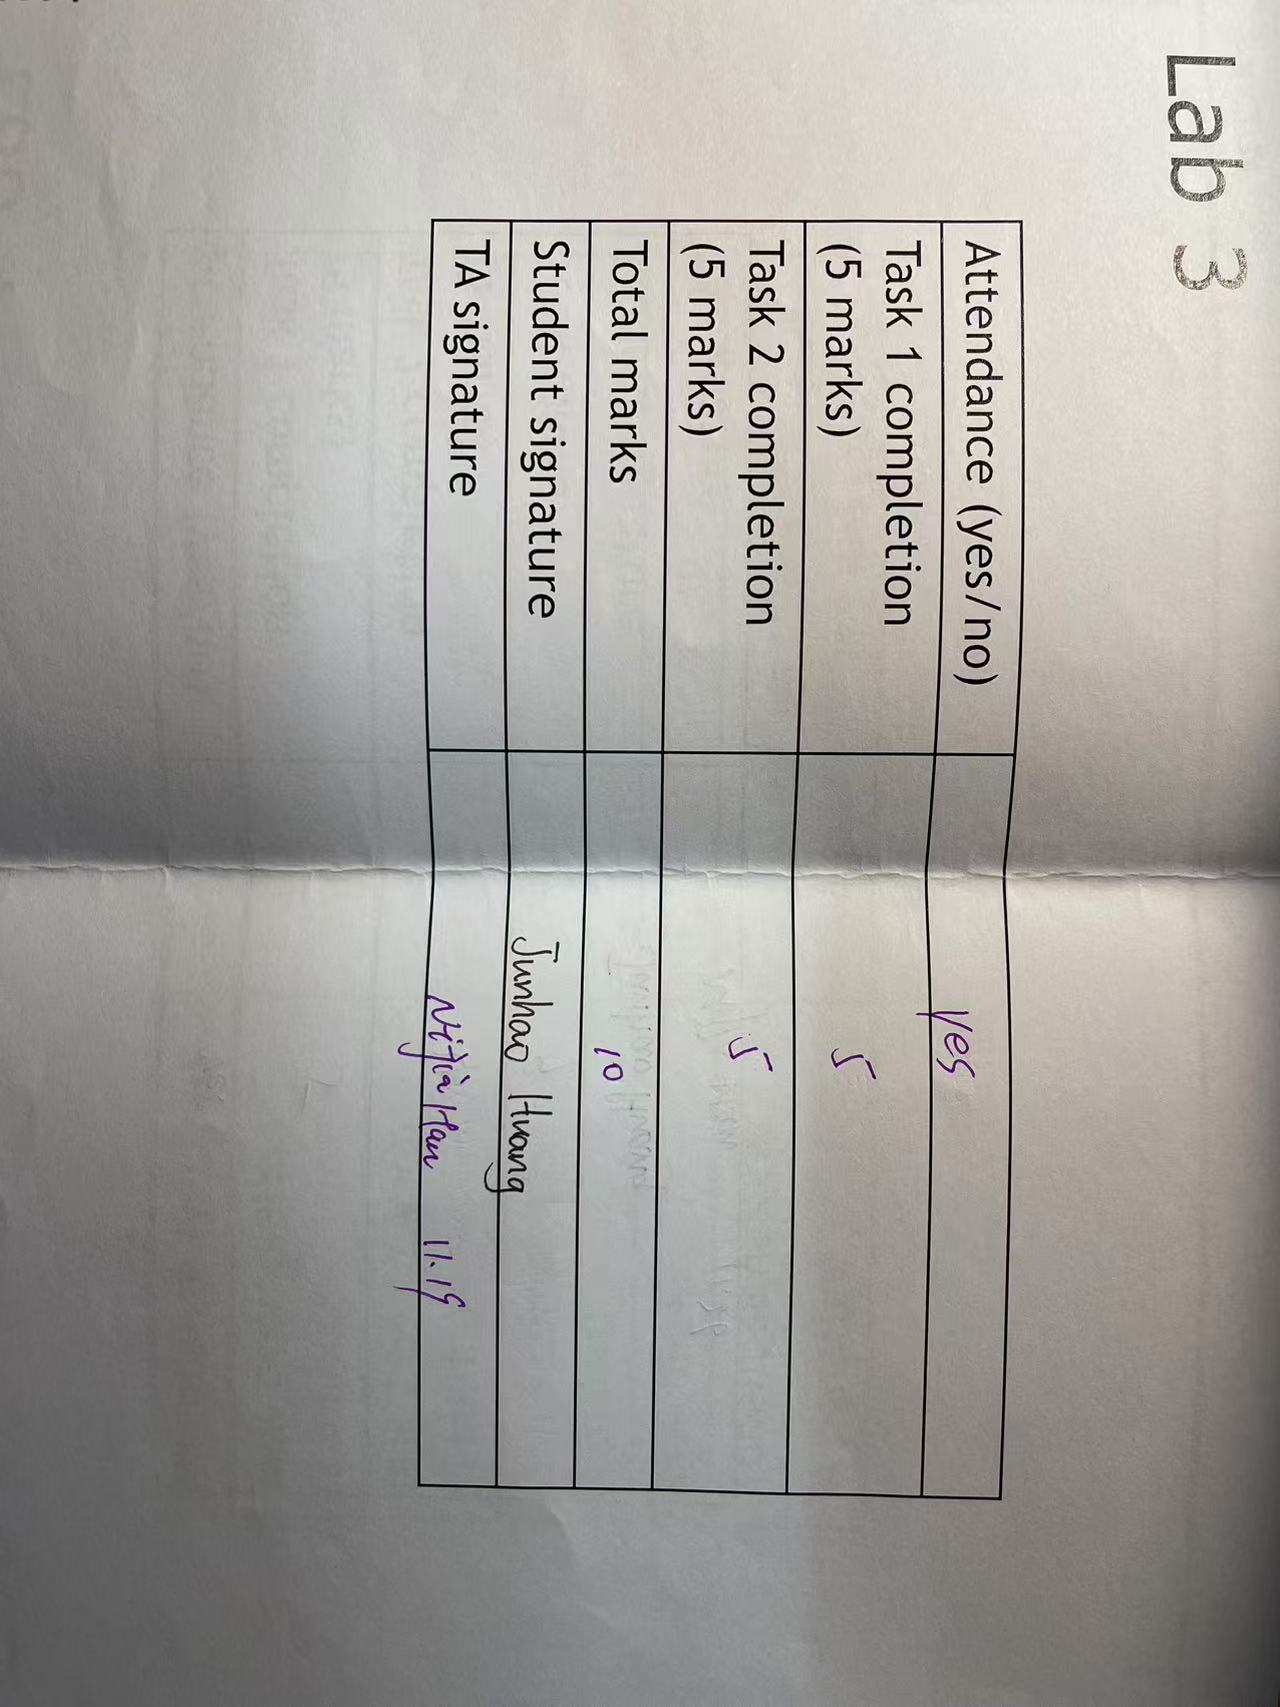 Lab 3
Attendance (yes/no) yes
Task 1 completion
(5 marks) 5
Task 2 completion
(5 marks) 5
Total marks 10
Student signature Junhao Huang
TA signature Nijia Han 11.19